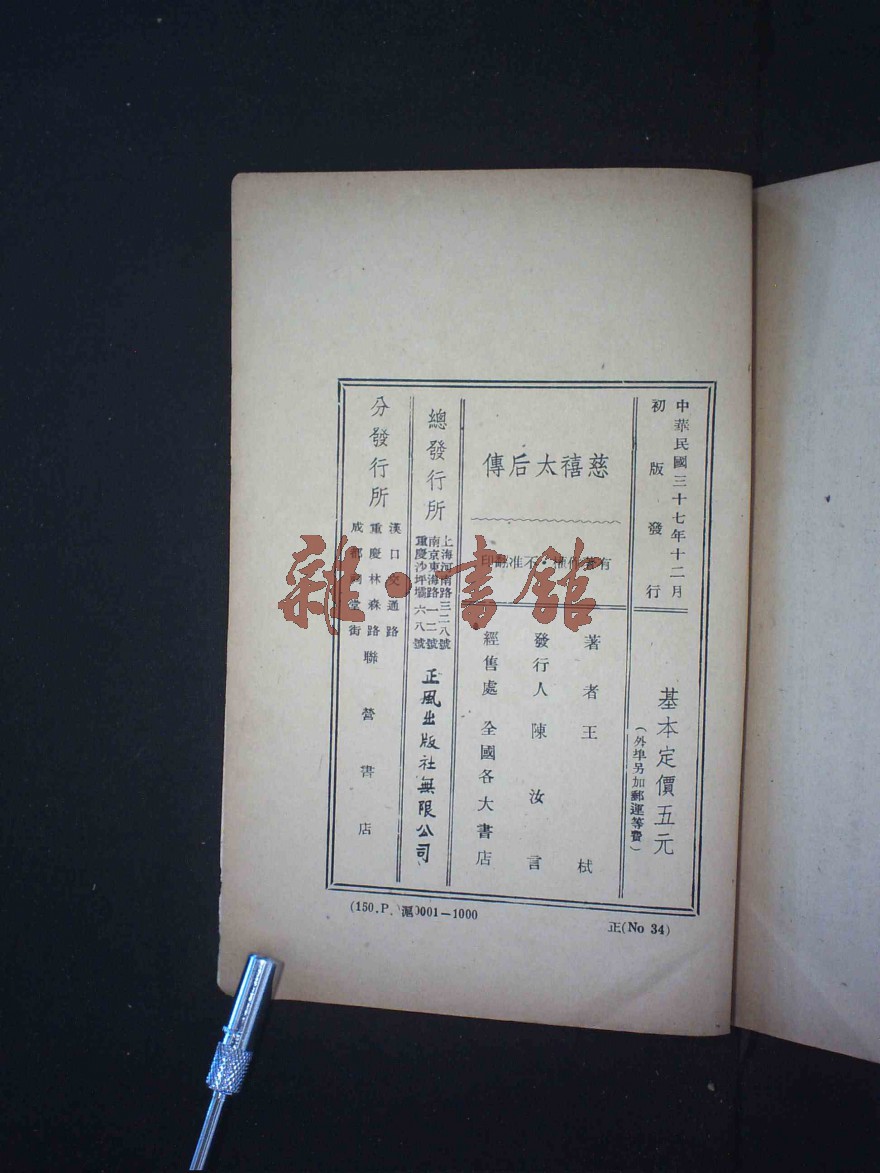 中華民國三十七年十二月
初版發行
基本定價五元
(外埠另加郵運等費)
慈禧太后傳
有著作權·不准翻印
著者王栻
發行人陳汝言
經售處全國各大書店
總發行所
上海河南路三二八號
南京東海路一二號
重慶沙坪壩六八號
正風出版社無限公司
分發行所
漢口交通路
重慶林森路
成都祠堂街
聯營書店
(150.P. 滬0001—1000
正(No 34)
雜·書館